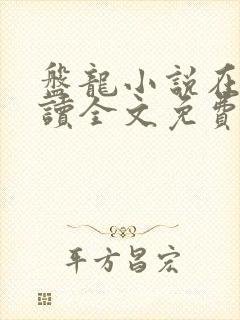 盤龍小説在
讀全文免費
平方昌宏